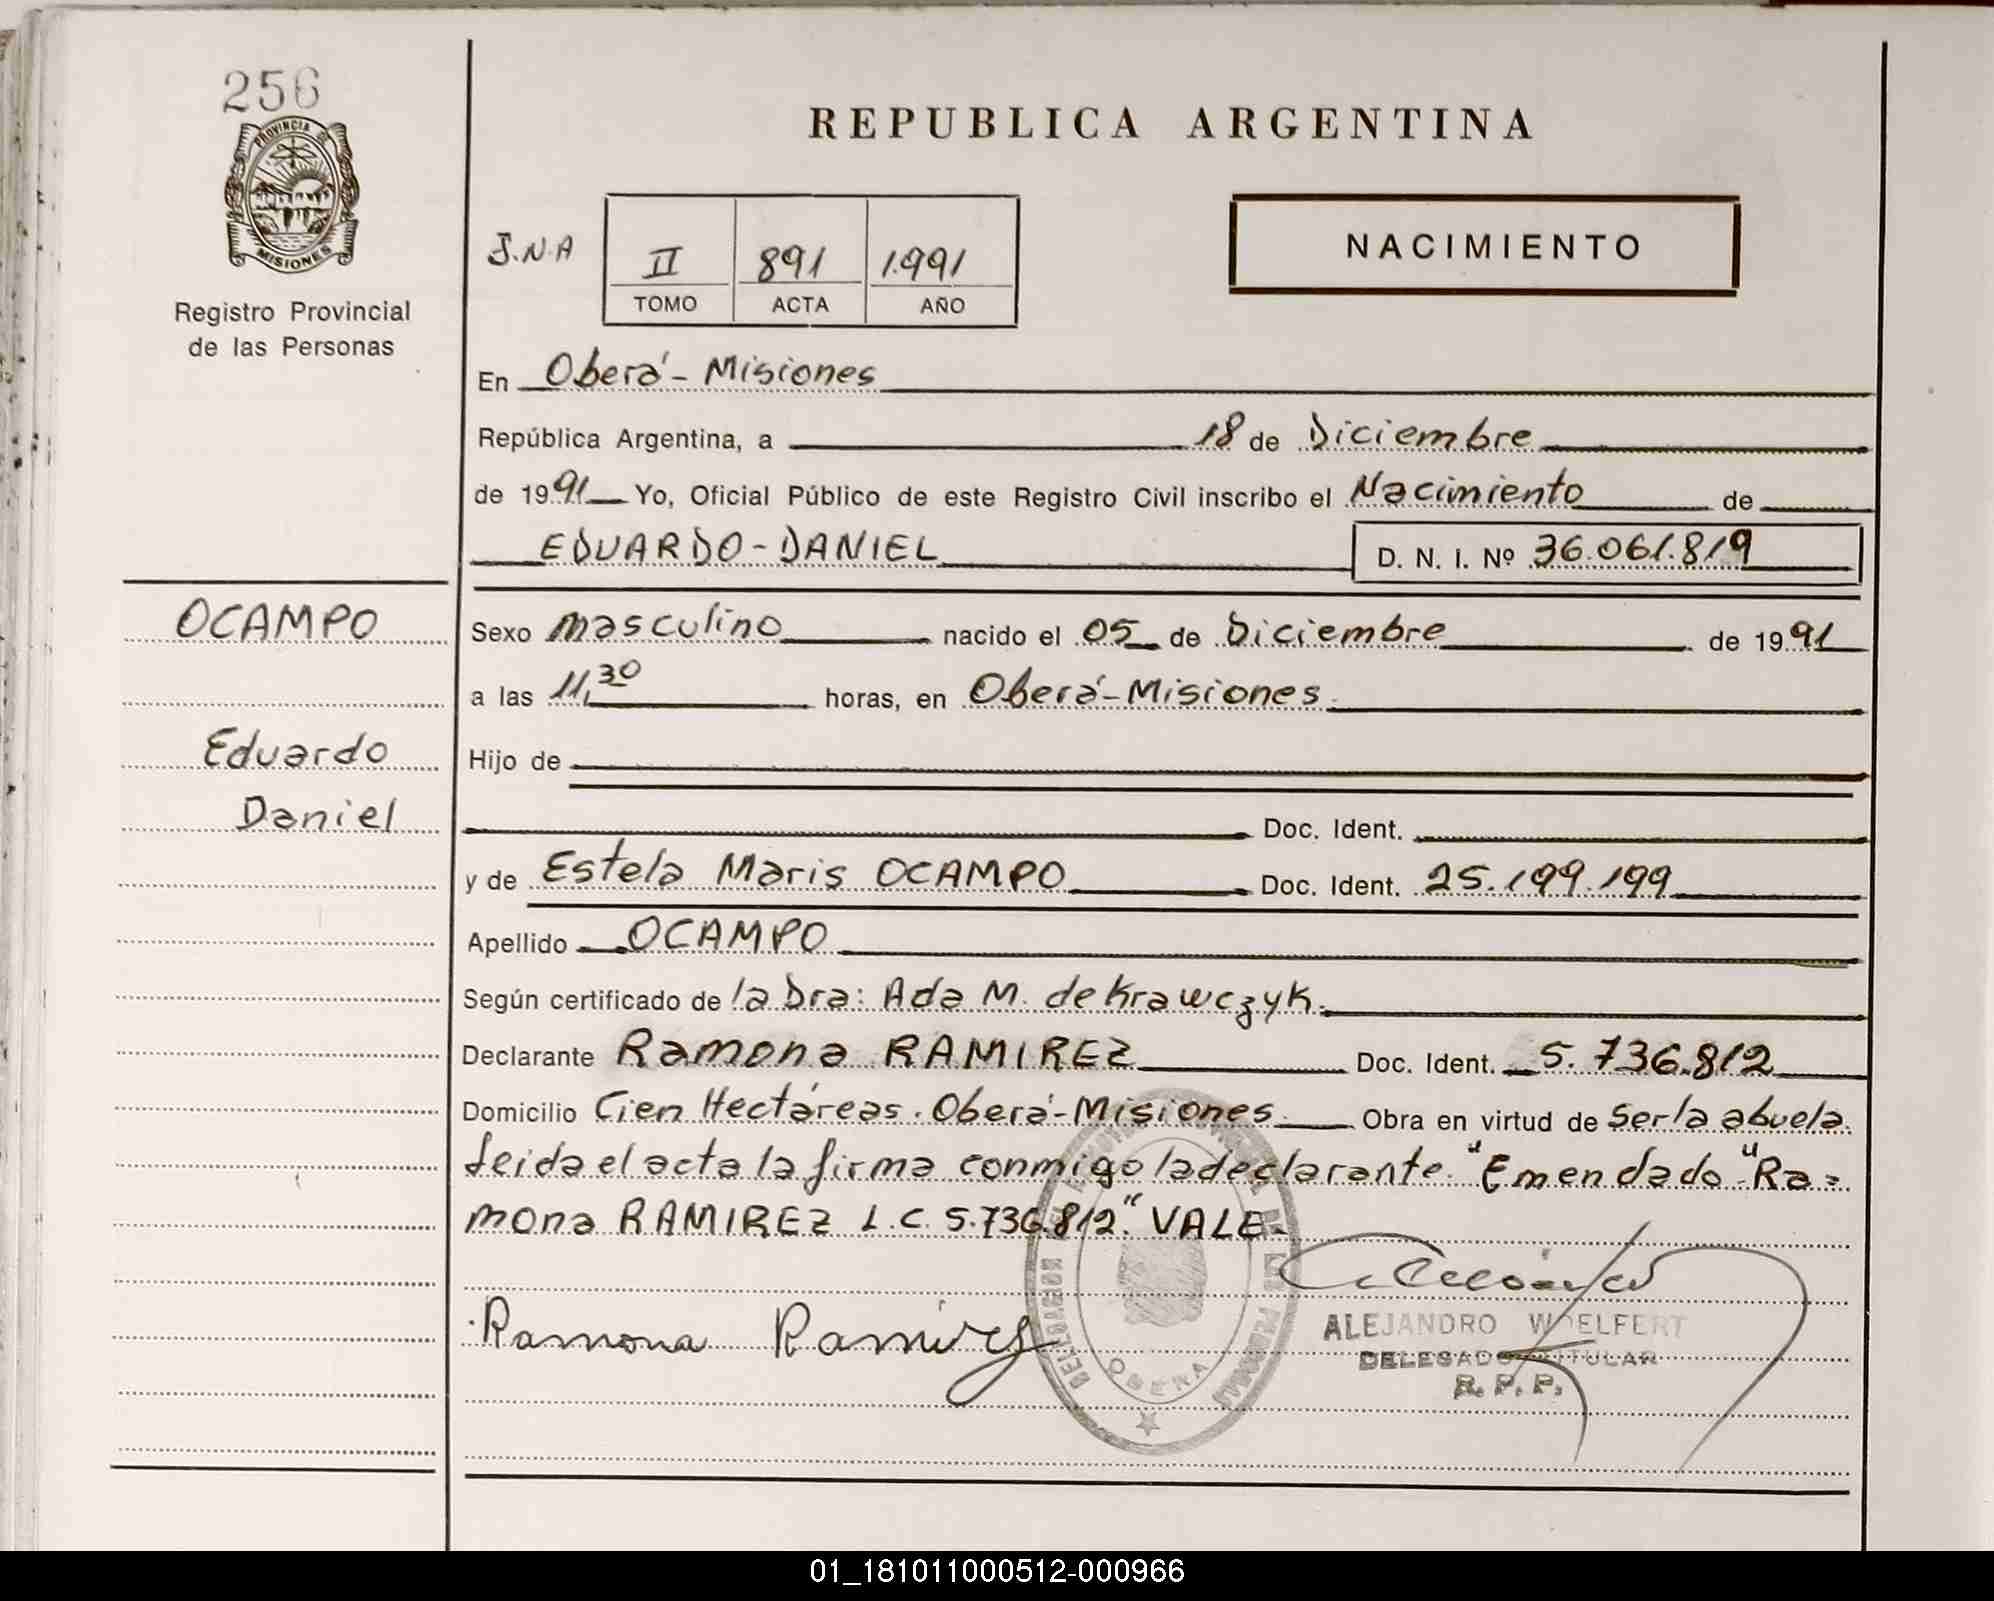 256
PROVINCIA DE
MISIONES
Registro Provincial
de las Personas
REPUBLICA ARGENTINA
J.N.A II 891 1.991
TOMO ACTA AÑO
NACIMIENTO
En Oberá - Misiones
República Argentina, a 18 de Diciembre
de 1991 Yo, Oficial Público de este Registro Civil inscribo el Nacimiento de
EDUARDO - DANIEL D. N. I. Nº 36.061.819
OCAMPO
Eduardo
Daniel
Sexo masculino nacido el 05 de Diciembre de 1991
a las 11,30 horas, en Oberá - Misiones.
Hijo de
Doc. Ident.
y de Estela Maris OCAMPO Doc. Ident. 25.199.199
Apellido OCAMPO
Según certificado de la Dra: Ada M. de Krawczyk.
Declarante Ramona RAMIREZ Doc. Ident. 5.736.812
Domicilio Cien Hectáreas. Oberá - Misiones. Obra en virtud de ser la abuela.
Leida el acta la firma conmigo la declarante. "Emendado" Ra=
mona RAMIREZ L.C. 5.736.812." VALE.
Ramona Ramirez
OBERA
ALEJANDRO WOELFERT
DELEGADO TITULAR
R. P. P.
01_181011000512-000966